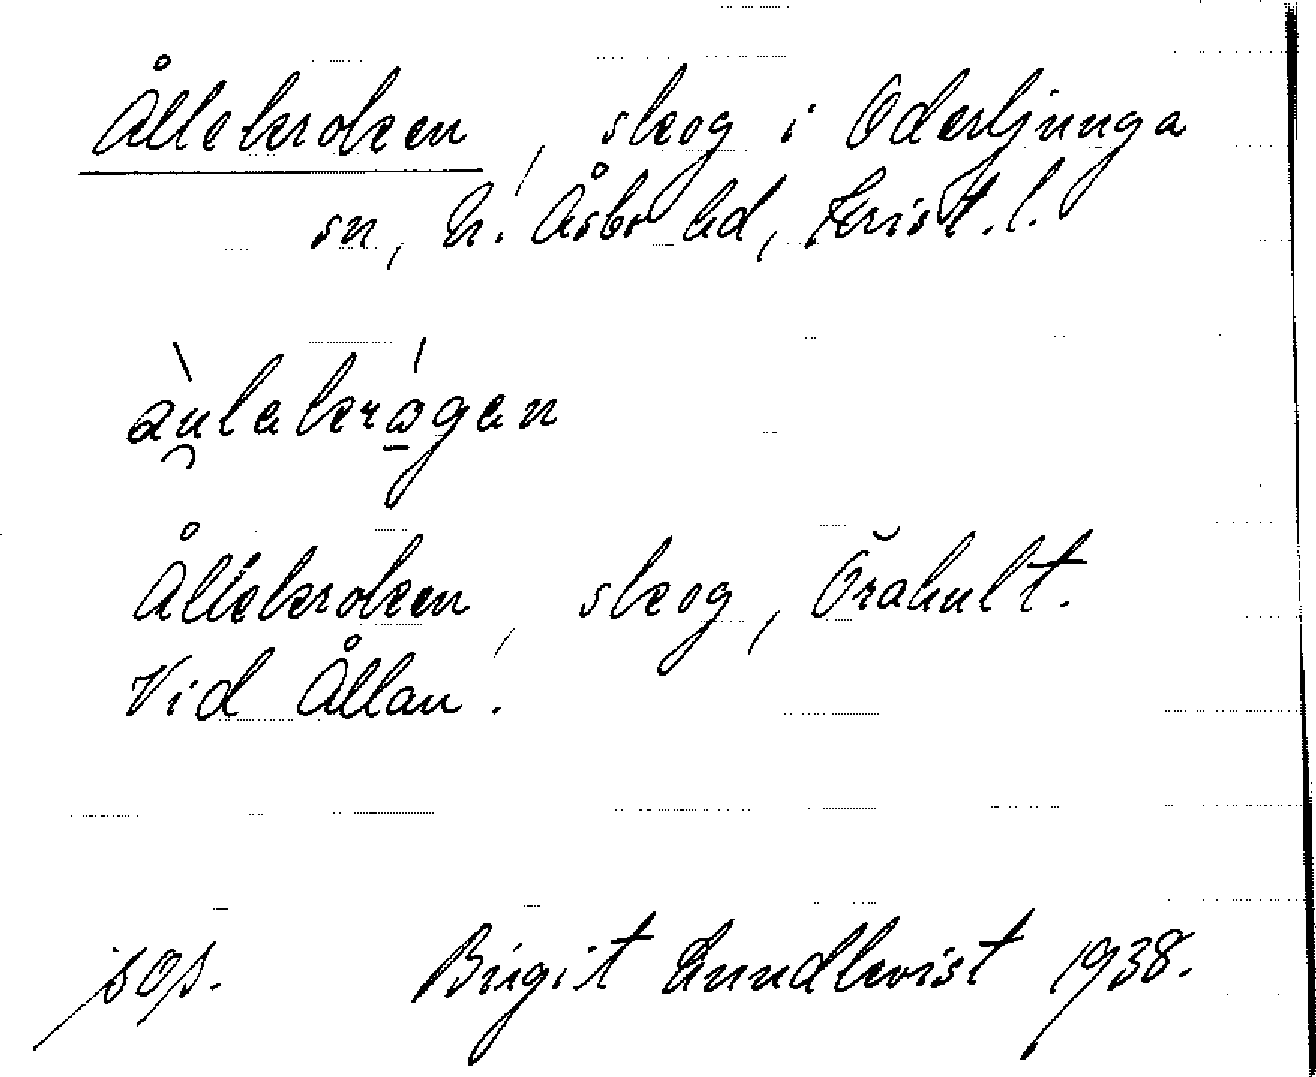 Ållekroken, skog i Oderljunga
sn, N. Åsbo hd, Krist. l.
Ållekroken, skog, Örahult.
Vid Ållan.
sop. Birgit Lundkvist 1938.